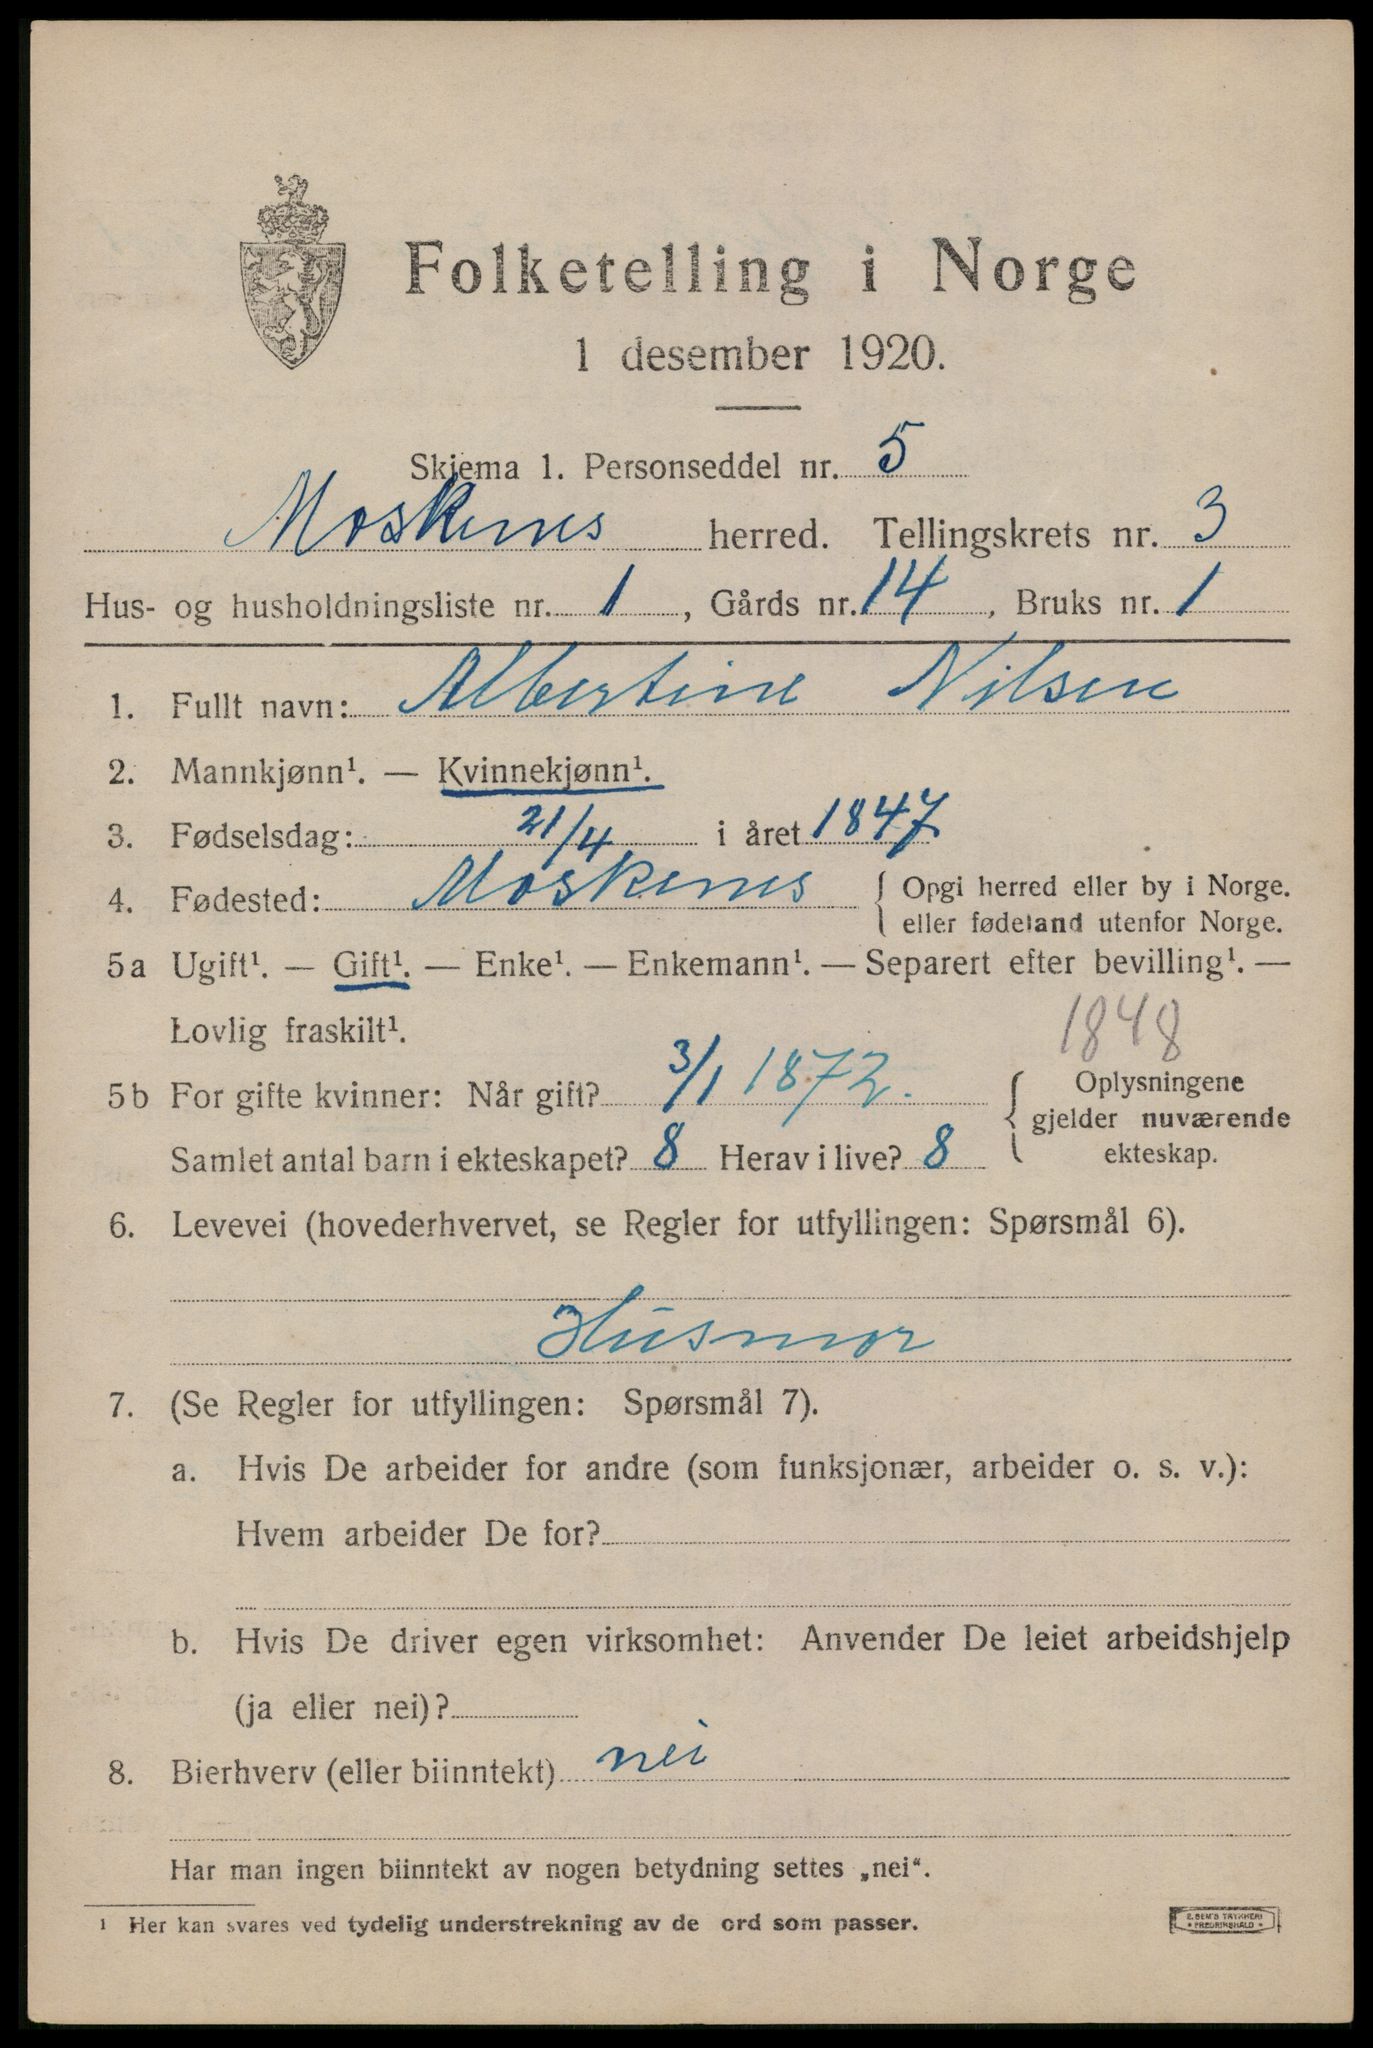 Folketelling i Norge
1 desember 1920.
Skjema 1. Personseddel nr. 5
Moskenes herred. Tellingskrets nr. 3
Hus- og husholdningsliste nr. 1, Gårds nr. 14, Bruks nr. 1
1. Fullt navn: Albertine Nilsen
2. Mannkjønn¹. — Kvinnekjønn¹.
3. Fødselsdag: 21/4 i året 1847
4. Fødested: Moskenes { Opgi herred eller by i Norge.
eller fødeland utenfor Norge.
5a Ugift¹. — Gift¹. — Enke¹. — Enkemann¹. — Separert efter bevilling¹. —
Lovlig fraskilt¹.
1848
5b For gifte kvinner: Når gift? 3/1 1872. { Oplysningene
gjelder nuværende
ekteskap.
Samlet antal barn i ekteskapet? 8 Herav i live? 8
6. Levevei (hovederhvervet, se Regler for utfyllingen: Spørsmål 6).
Husmor
7. (Se Regler for utfyllingen: Spørsmål 7).
a. Hvis De arbeider for andre (som funksjonær, arbeider o. s. v.):
Hvem arbeider De for?
b. Hvis De driver egen virksomhet: Anvender De leiet arbeidshjelp
(ja eller nei)?
8. Bierhverv (eller biinntekt) nei
Har man ingen biinntekt av nogen betydning settes „nei“.
¹ Her kan svares ved tydelig understrekning av de ord som passer.
E. SEM'S TRYKKERI
• FREDRIKSHALD •